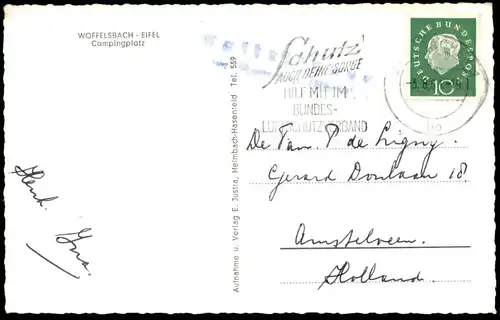 WOFFELSBACH - EIFEL
Campingplatz
Henk. Ina.
Aufnahme u. Verlag E. Justra, Heimbach-Hasenfeld Tel. 559
Schutz
AUCH DEINE SORGE
HILF MIT IM
BUNDES-
LUFTSCHUTZVERBAND
DEUTSCHE BUNDESPOST
10
De Fam. P de Ligny.
Gerard Doulaan 18.
Amstelveen.
Holland.